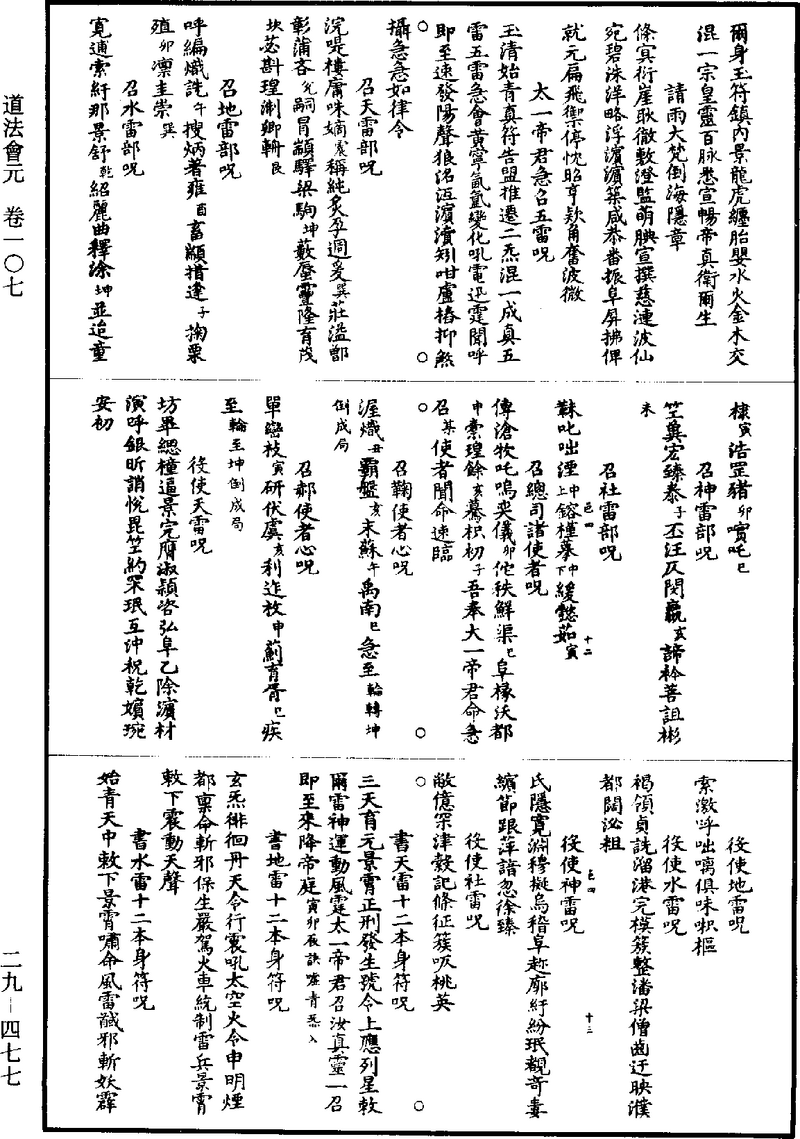 道法會元　卷一〇七
爾身玉符鎮內景龍虎纏胎嬰水火金木交
混一宗皇靈百脉悉宣暢帝真衛爾生
請雨大梵倒海隱章
絛寅衍崖耿徹敷澄監萌腆宣撰慈漣波仙
宛碧洙洋略浮濵濵築咸恭番振阜屏拂俾
就元扁飛禦停忱昭亨欵角奮波微
太一帝君急召五雷呪
玉清始青真符告盟推遷二炁混一成真五
雷五雷急會黄寧氤氳變化吼電迅霆聞呼
即至速發陽聲狼洛沍濵瀆矧咁盧椿抑煞
攝急急如律令
召天雷部呪
浣喤樓庸味嫡震稱純炙孕週爰巽莊溢鄮
彰蒲吝允嗣冐顓驛梁駒坤藪蜃靈隆育茂
坎苾斟瑝淛卿輈艮
召地雷部呪
呼編熾詵午搜炳著雍酉畜顓措逢子掬栗
殖卯凛圭崇巽
召水雷部呪
寛逋索紆那景舒乾紹麗曲釋涂坤並迨童
棣寅浩罡豬卯嚬吒巳
召神雷部呪
笁冀宏臻泰子丕汪仄閔羸亥諦袊菩詛彬
未
召社雷部呪
靺叱咄湮上中鎔槿摹下中緩懿茹寅
召總司諸使者呪
傳滄牧吒嗚奭儀卯佗秩鮮渠巳阜椽沃都
申橐瑝餘亥驀枳初子吾奉大一帝君命急
召某使者聞命速臨
召鞠使者心呪
渥熾丑霸艦亥末蘇午禹南巳急至輪轉坤
倒成局
召郝使者心呪
單巒枝寅研伏虞亥利迮枚申薊育胥巳疾
至輪至坤倒成局
役使天雷呪
坊畢緦橦逼景完膺淑頴咨弘阜乙除濵材
演呼銀昕誚悅毘笁約罘珉互冲祝乾嬪琬
安初
役使地雷呪
索激呼咄嚆俱味呶樞
役使水雷呪
褐領貞詵溜港完模簇整潘梁僧鹵迂映濮
都闊泌祖
役使神雷呪
氏隱寛淵穆擬烏稽阜赴廓紆紛珉觀奇妻
繽節跟萍諳忽徐臻
役使社雷呪
敞億罘津穀記條征簇吸桃英
書天雷十二本身符呪
三天育元景霄正刑發生號令上應列星敕
爾雷神運動風霆太一帝君召汝真靈一召
即至來降帝庭寅卯辰訣噓青炁入
書地雷十二本身符呪
玄炁徘徊丹天令行震吼太空火令申明煙
都禀命斬邪保生嚴駕火車統制雷兵景霄
敕下震動天聲
書水雷十二本身符呪
始青天中敕下景霄嘯命風雷馘邪斬妖霹
二九－四七七